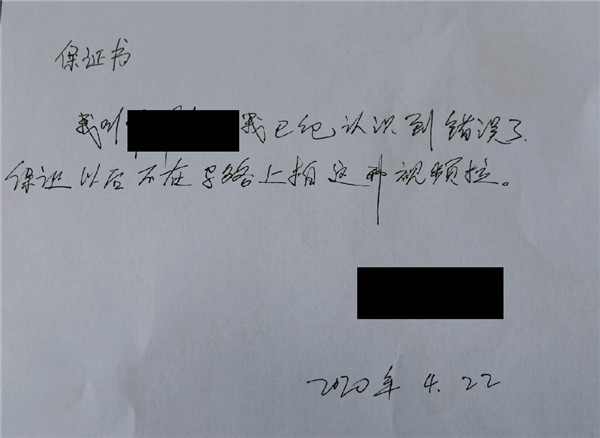 保证书
我叫 我已纪认识到错误了
保证以后不在导路上拍这种视频拉。
2020年 4.22